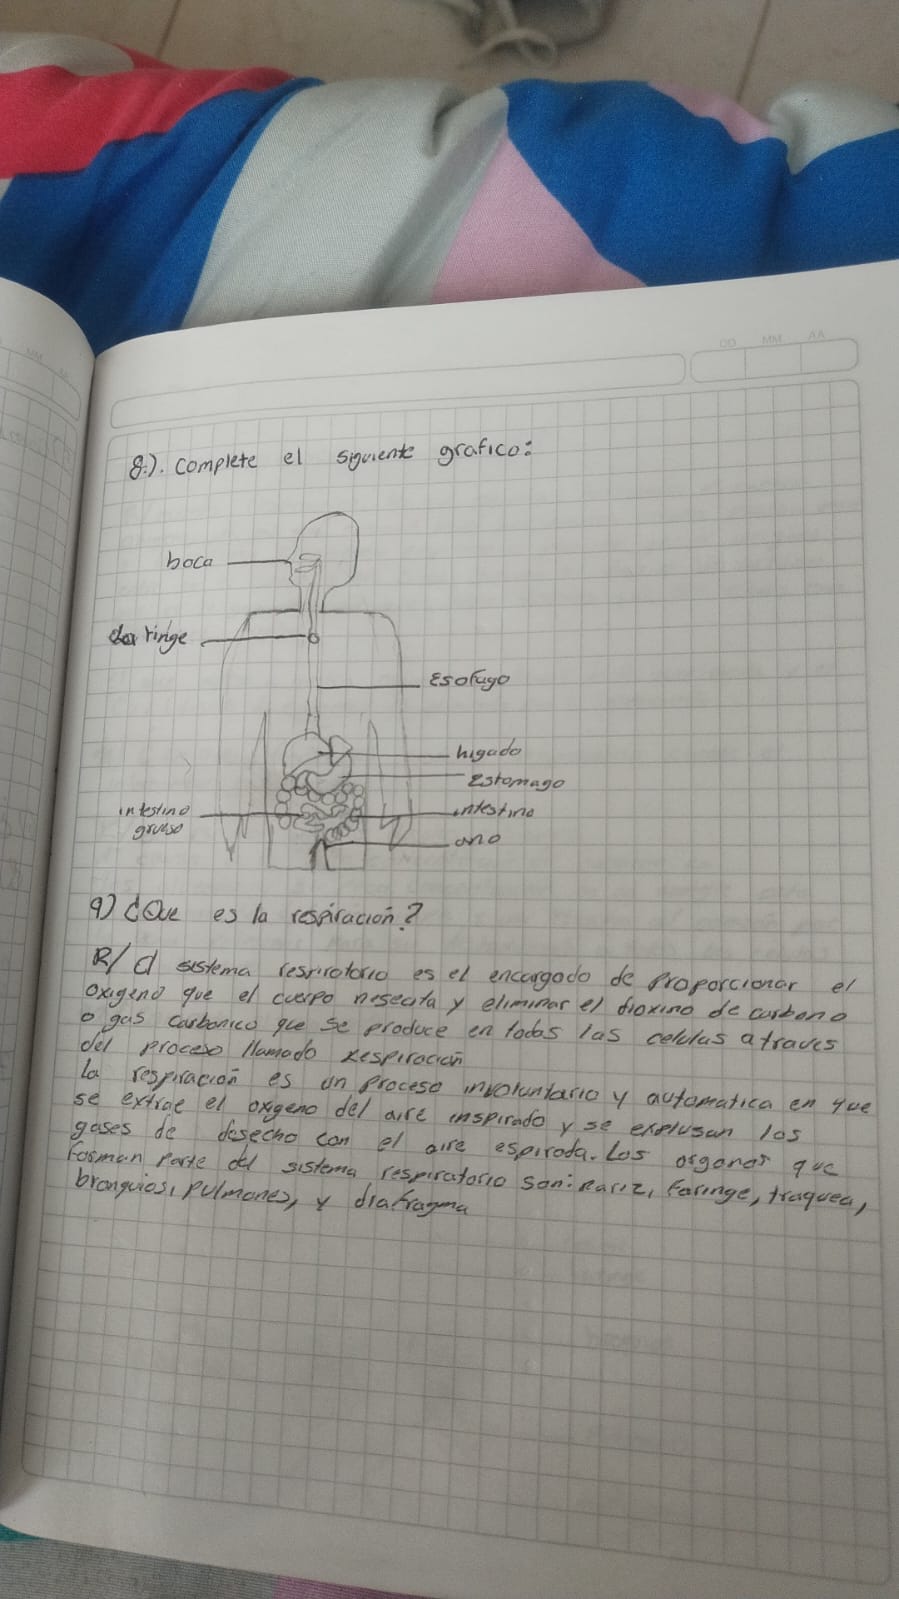 DD MM AA
MM
8.). Complete el siguiente grafico:
boca
ringe
Esofago
higado
Estomago
intestino
grueso
intestino
ano
9) ¿Que es la respiración?
R/ el sistema respiratorio es el encargado de proporcionar el
oxigeno que el cuerpo nesecita y eliminar el dioxino de carbono
o gas carbonico que se produce en todas las celulas a traves
del proceso llamado respiración
la respiración es un proceso involuntario y automatica en que
se extrae el oxigeno del aire inspirado y se explusan los
gases de desecho con el aire espirada. Los organos que
forman parte del sistema respiratorio son: nariz, faringe, traquea,
bronquios, pulmones, y diafragma